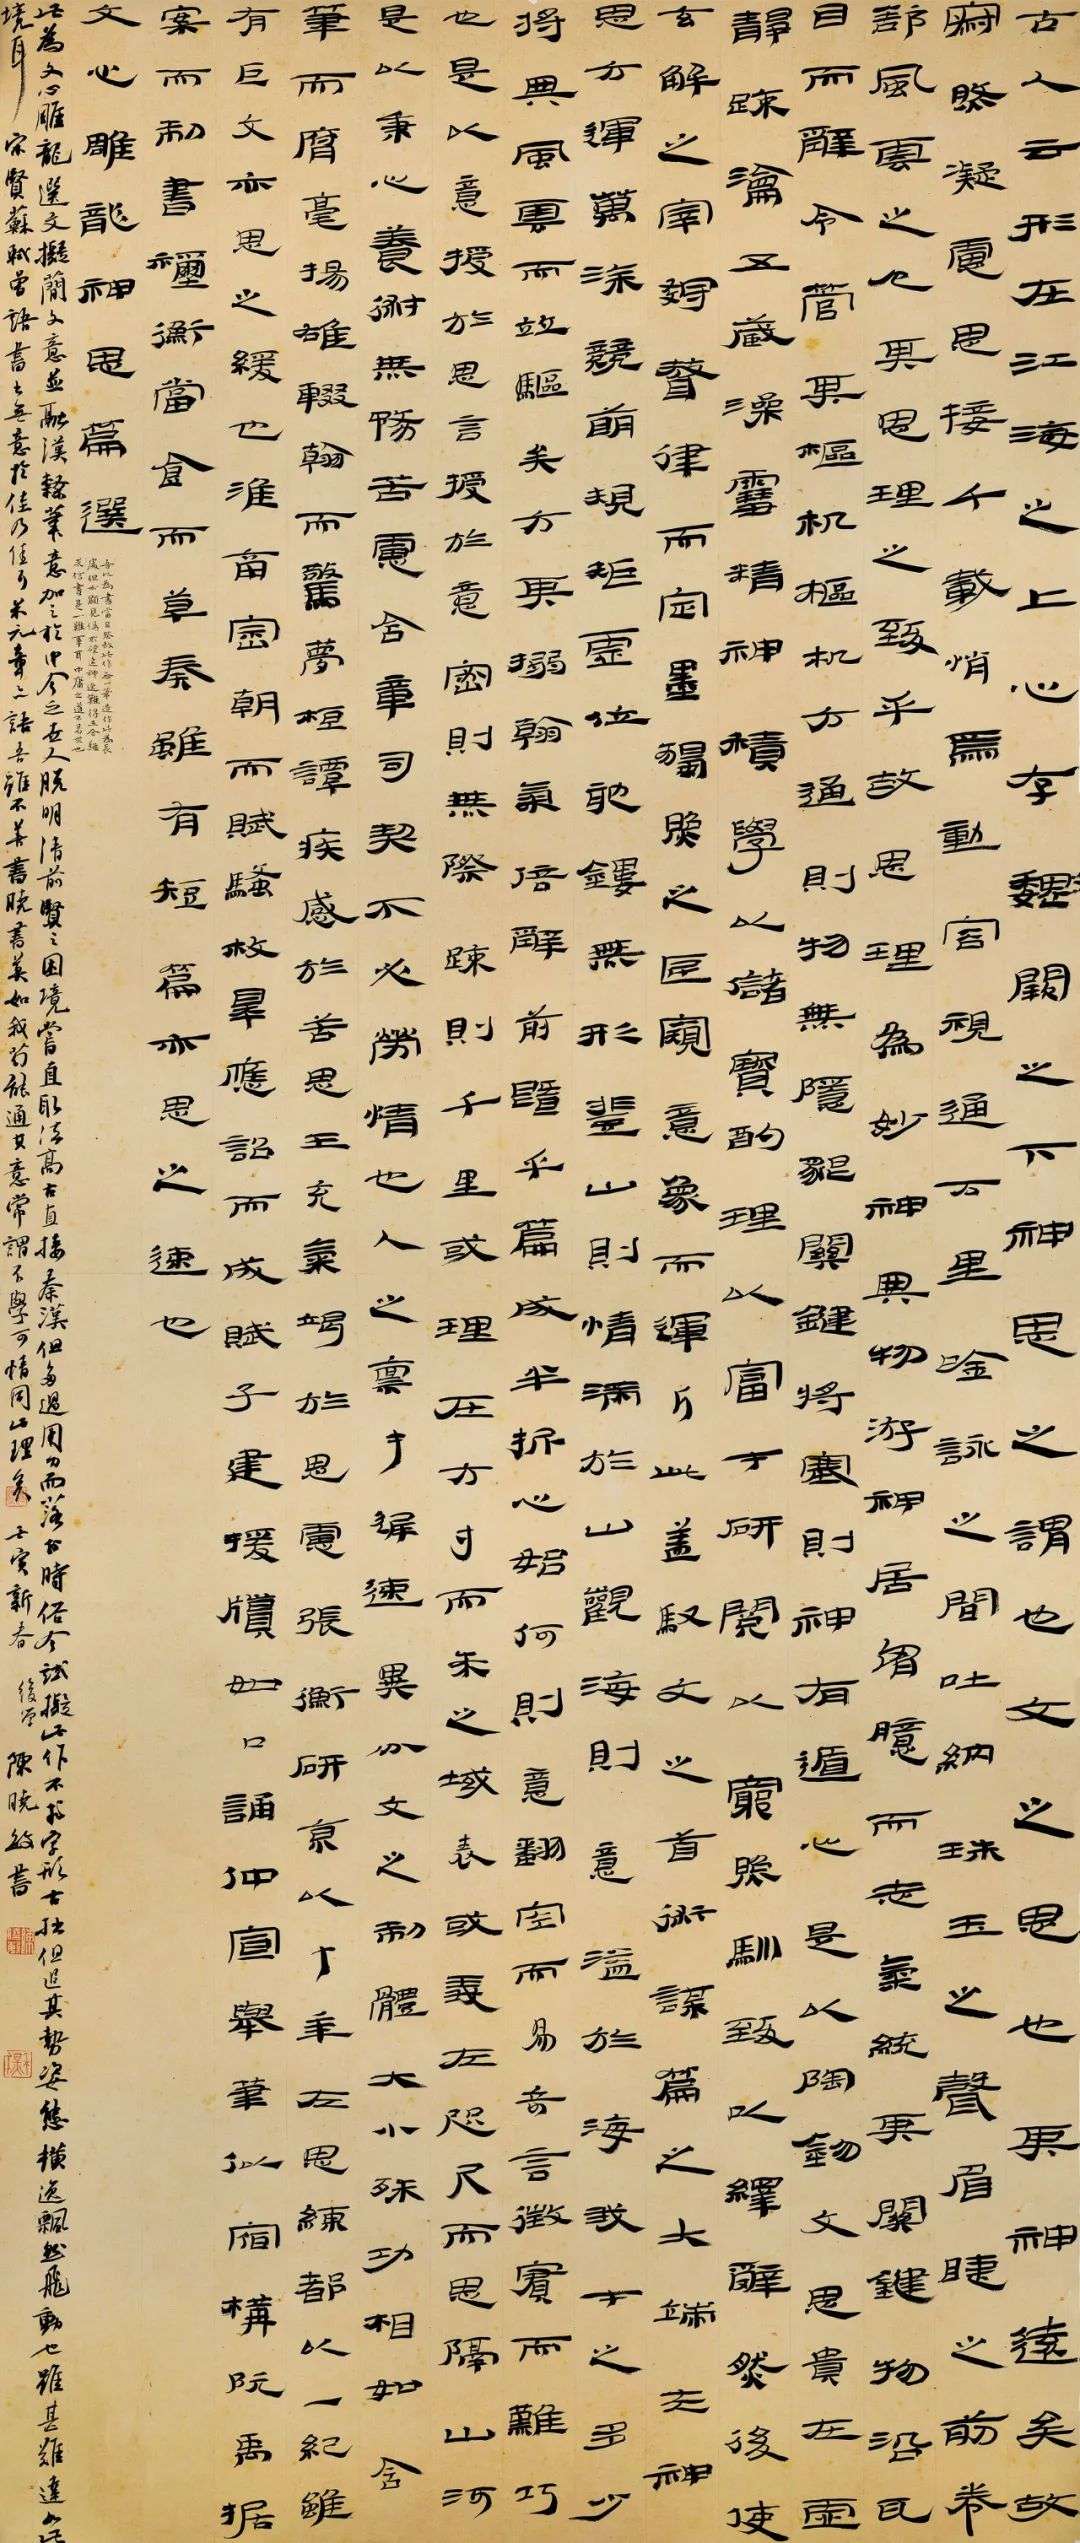 古人云形在江海之上心存魏闕之下神思之謂也文之思也其神遠矣故
寂然凝慮思接千載悄焉動容視通万里吟詠之間吐納珠玉之聲眉睫之前卷
舒風雲之色其思理之致乎故思理為妙神與物游神居胷臆而志氣統其關鍵物沿耳
目而辭令管其樞机樞机方通則物無隱貌關鍵將塞則神有遁心是以陶鈞文思貴在虛
靜疏瀹五藏澡雪精神積學以儲寶酌理以富才研閱以窮照馴致以繹辭然後使
玄解之宰尋聲律而定墨獨照之匠窺意象而運斤此蓋馭文之首術謀篇之大端夫神
思方運萬塗競萌規矩虛位刻鏤無形登山則情滿於山觀海則意溢於海我才之多少
將與風雲而竝驅矣方其搦翰氣倍辭前暨乎篇成半折心始何則意翻空而易奇言徵實而難巧
也是以意授於思言授於意密則無際疏則千里或理在方寸而求之域表或義在咫尺而思隔山河
是以秉心養術無務苦慮含章司契不必勞情也人之稟才遲速異分文之制體大小殊功相如含
筆而腐毫揚雄輟翰而驚夢桓譚疾感於苦思王充氣竭於思慮張衡研京以十年左思練都以一紀雖
有巨文亦思之緩也淮南崇朝而賦騷枚皋應詔而成賦子建援牘如口誦仲宣舉筆似宿構阮禹據
案而制書禰衡當食而草奏雖有短篇亦思之速也
文心雕龍神思篇選
此為文心雕龍選文擬簡文意並融漢隸筆意加之於中今之世人脱明清前賢之困境嘗直取法高古直接秦漢但多過用力而落於時俗今試擬此作不求字形古拙但追其勢姿態橫逸飄然飛動也雖甚難達此
境耳 宋賢蘇軾曾語書無意於佳乃佳 米元章 語吾雖不善書曉書莫如我苟能通其意常謂不學可 情同此理矣 壬寅新春 後學 陳曉敏書